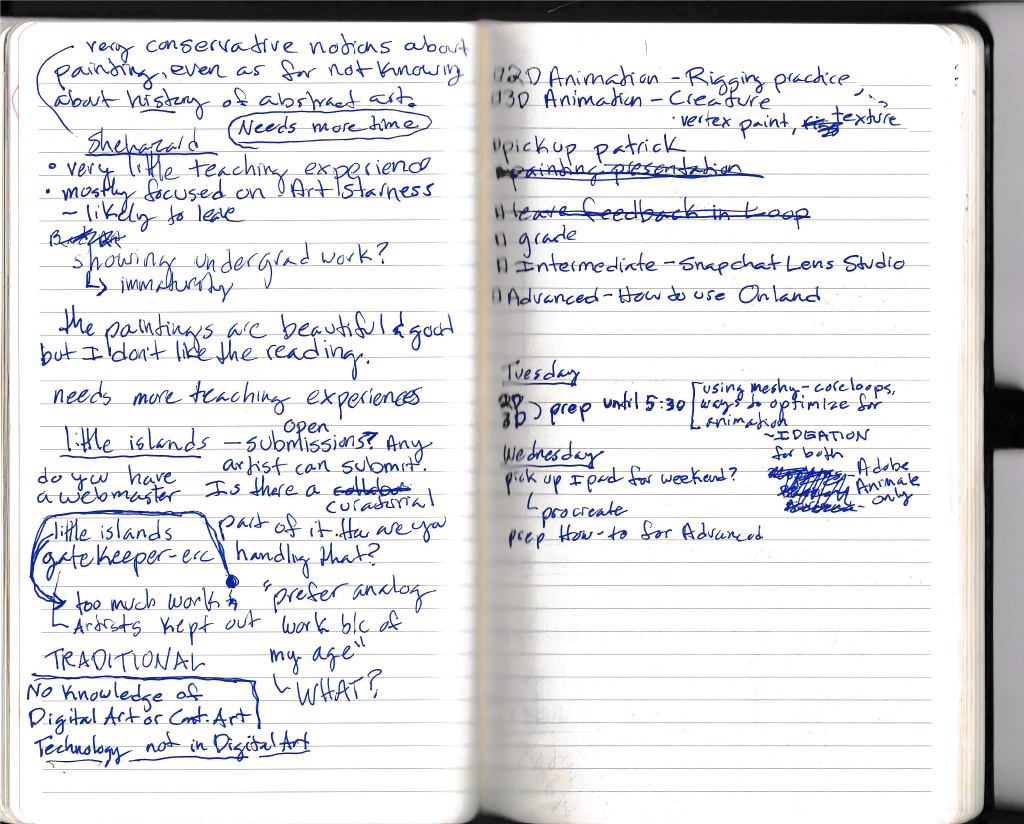 very conservative notions about
painting, even as far not knowing
about history of abstract art.
Needs more time
Shehazaid
• very little teaching experience
• mostly focused on Art Starness
~ likely to leave
showing undergrad work?
↳ immaturity
the paintings are beautiful & good
but I don't like the reading.
needs more teaching experiences
little islands – open submissions? Any
artist can submit.
do you have
a webmaster
Is there a collabor
curatorial
part of it. How are you
handling that?
little islands
gatekeeper-erc
→ too much work &
Artists kept out
"prefer analog
work b/c of
my age"
↳ WHAT?
TRADITIONAL
No knowledge of
Digital Art or Cont. Art
Technology not in Digital Art
2D Animation – Rigging practice
3D Animation – Creature
• vertex paint, texture
pickup patrick
painting presentation
leave feedback in Loop
grade
Intermediate – Snapchat Lens Studio
Advanced – How to use Onland
Tuesday
2D
3D ) prep until 5:30
using meshy – core loops,
ways to optimize for
animation
~ IDEATION
for both
Wednesday
pick up Ipad for weekend?
↳ procreate
Adobe
Animate
only
prep How-to for Advanced